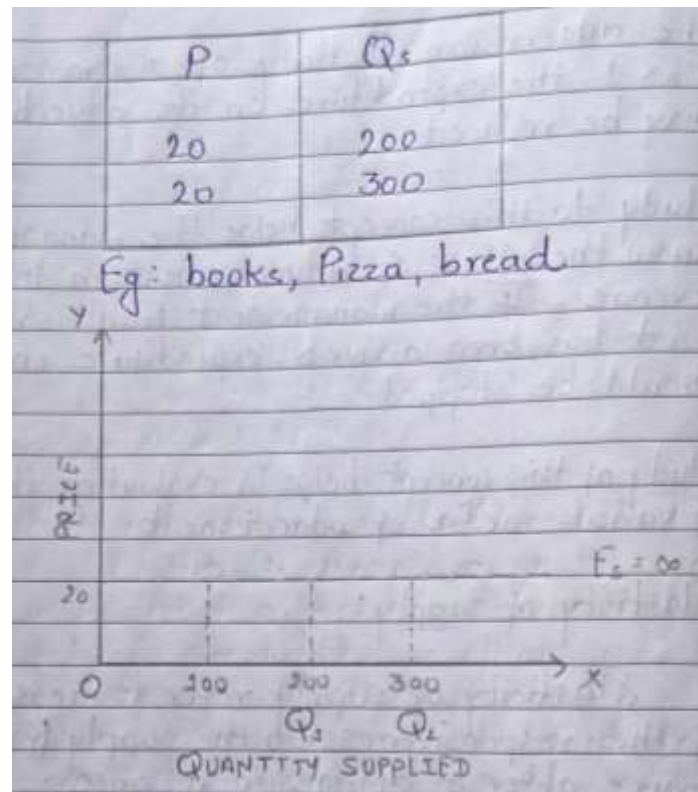 P Qs
20 200
20 300
Eg: books, Pizza, bread
Y
PRICE
Es = ∞
20
O 100 200 300 X
Q1 Q2
QUANTITY SUPPLIED